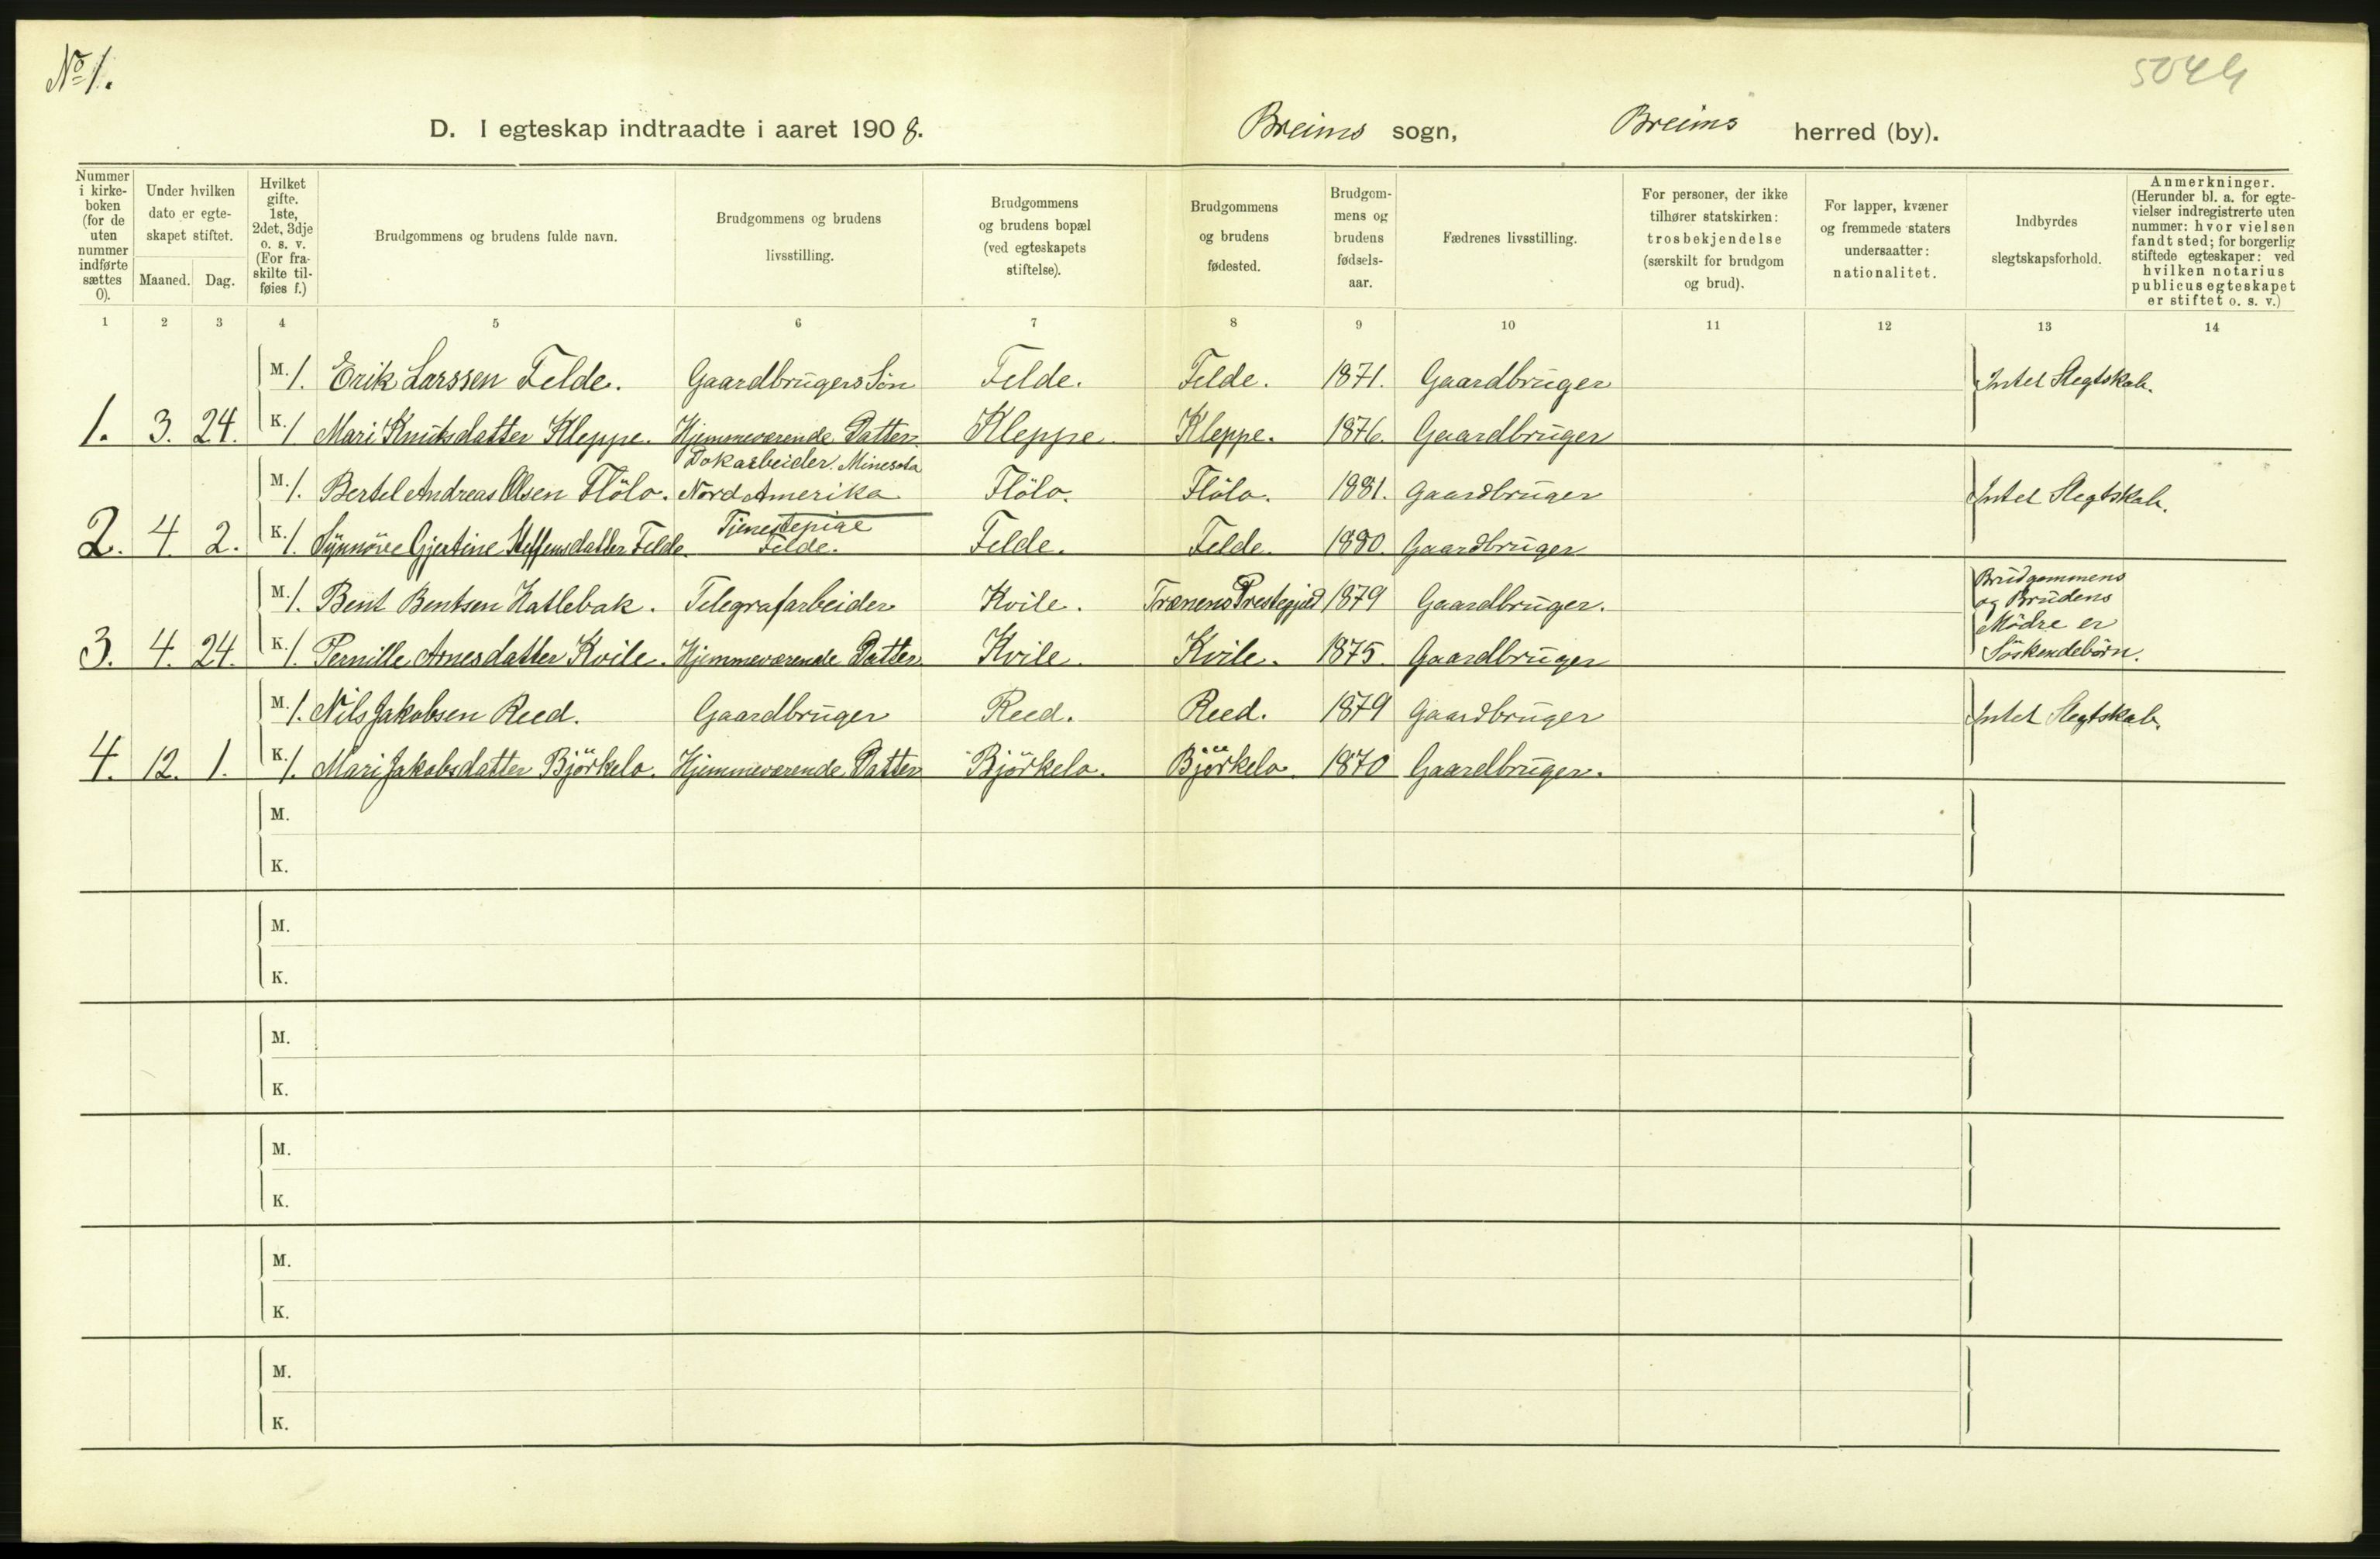 No 1.
5044
D. I egteskap indtraadte i aaret 1908. Breims sogn, Breims herred (by).
Nummer i kirke-boken (for de uten nummer indførte sættes 0).
Under hvilken dato er egte-skapet stiftet.
Maaned. Dag.
Hvilket gifte. 1ste, 2det, 3dje o. s. v. (For fra-skilte til-føies f.)
Brudgommens og brudens fulde navn.
Brudgommens og brudens livsstilling.
Brudgommens og brudens bopæl (ved egteskapets stiftelse).
Brudgommens og brudens fødested.
Brudgom-mens og brudens fødsels-aar.
Fædrenes livsstilling.
For personer, der ikke tilhører statskirken: trosbekjendelse (særskilt for brudgom og brud).
For lapper, kvæner og fremmede staters undersaatter: nationalitet.
Indbyrdes slegtskapsforhold.
Anmerkninger. (Herunder bl. a. for egte-vielser indregistrerte uten nummer: hvor vielsen fandt sted; for borgerlig stiftede egteskaper: ved hvilken notarius publicus egteskapet er stiftet o. s. v.)
1 2 3 4 5 6 7 8 9 10 11 12 13 14
M. 1. Erik Larssen Felde. Gaardbrugers Søn Felde. Felde. 1871. Gaardbruger Intet Slegtskab.
1. 3. 24. K. 1 Mari Knutsdatter Kleppe. Hjemmeværende Datter. Kleppe. Kleppe. 1876. Gaardbruger
Dokarbeider. Minesota
M. 1. Bertel Andreas Olsen Flölo. Nord Amerika Flölo. Flölo. 1881. Gaardbruger Intet Slegtskab.
Tjenestepige
2. 4. 2. K. 1. Synnöve Gjertine Steffensdatter Felde. Felde. Felde. Felde. 1880. Gaardbruger
M. 1. Bent Bentsen Katlebak. Telegrafarbeider Kvile. Trænens Prestegjæld 1879 Gaardbruger. Brudgommens og Brudens
3. 4. 24. K. 1. Pernille Arnesdatter Kvile. Hjemmeværende Datter Kvile. Kvile. 1875. Gaardbruger Mödre er Söskendebörn.
M. 1. Nils Jakobsen Reed. Gaardbruger Reed. Reed. 1879 Gaardbruger Intet Slegtskab.
4. 12. 1. K. 1. Mari Jakobsdatter Björkelo. Hjemmeværende Datter Björkelo. Björkelo. 1870 Gaardbruger.
M.
K.
M.
K.
M.
K.
M.
K.
M.
K.
M.
K.